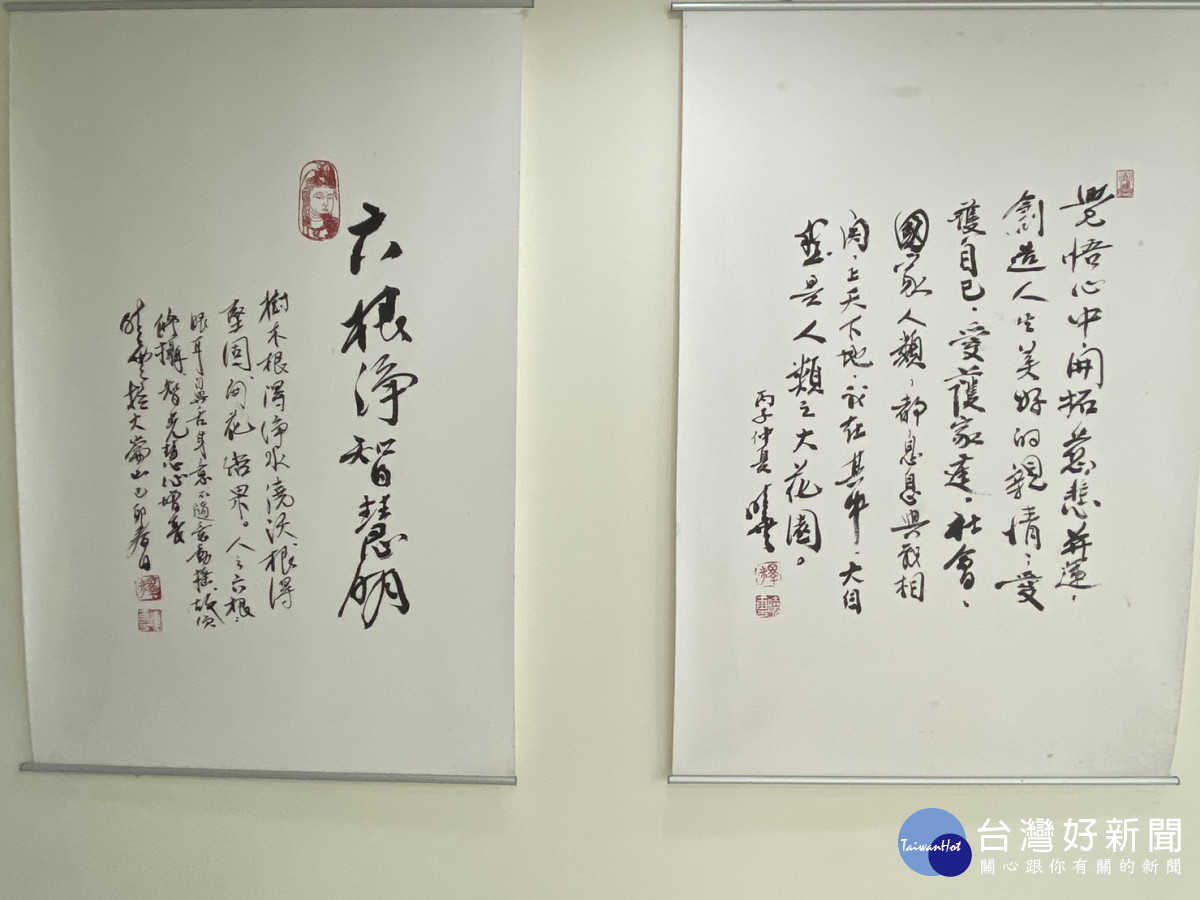 覺悟心中開拓慈悲并運，
創造人生美好的親情，愛
護自己，愛護家建，社會、
國家人類，都息息與我相
關，上天下地，我在其中，大自
然是人類之大花園。
丙子仲夏 曉雲
六根淨智慧明
樹木根得淨水澆沃、根得
堅固、開花結果。人之六根、
眼耳鼻舌身意不隨意動搖、故須
修攝、智光慧心增長
曉雲於大崙山己卯春日
台灣好新聞
TaiwanHot
關心跟你有關的新聞